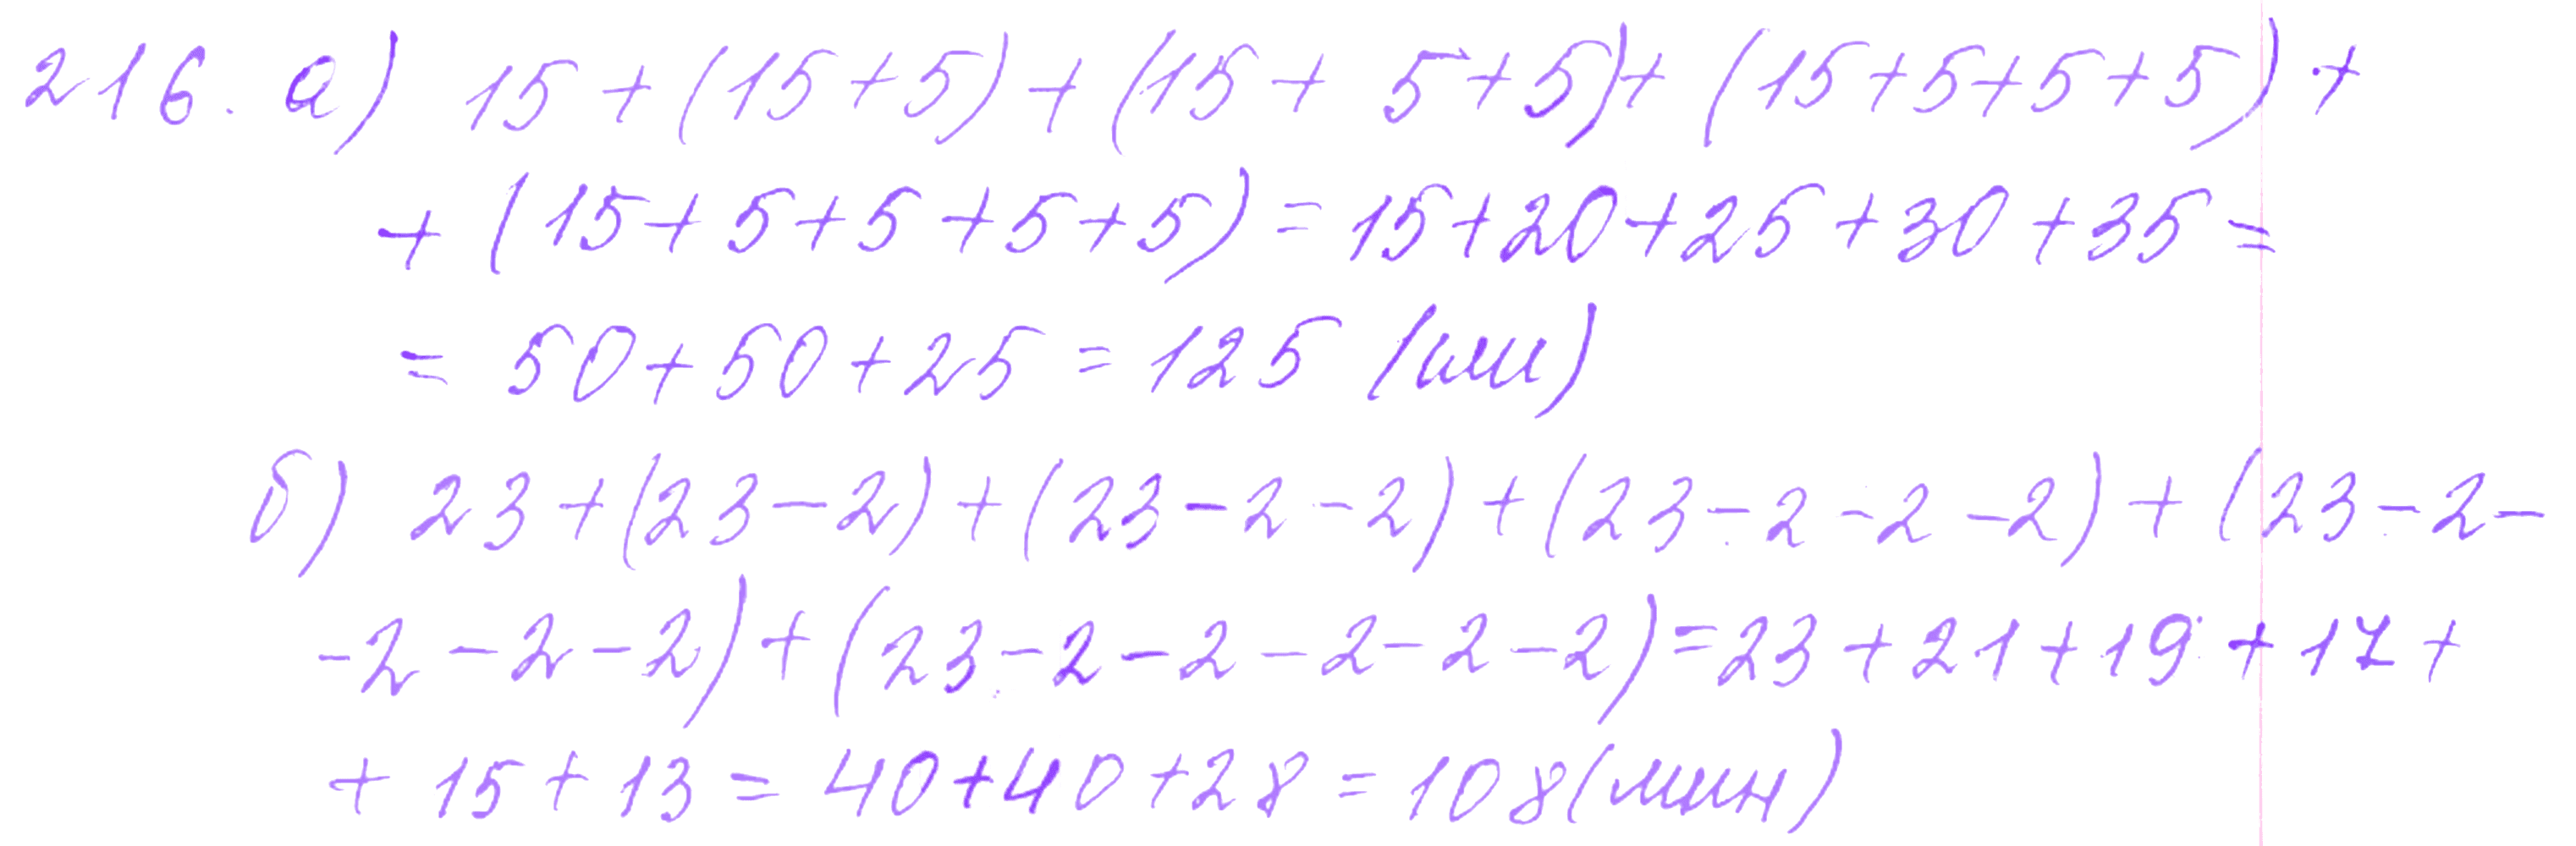 216. а) 15 + (15 + 5) + (15 + 5 + 5) + (15 + 5 + 5 + 5) +
+ (15 + 5 + 5 + 5 + 5) = 15 + 20 + 25 + 30 + 35 =
= 50 + 50 + 25 = 125
б) 23 + (23 - 2) + (23 - 2 - 2) + (23 - 2 - 2 - 2) + (23 - 2 -
- 2 - 2 - 2) + (23 - 2 - 2 - 2 - 2 - 2) = 23 + 21 + 19 + 17 +
+ 15 + 13 = 40 + 40 + 28 = 108 (мин)